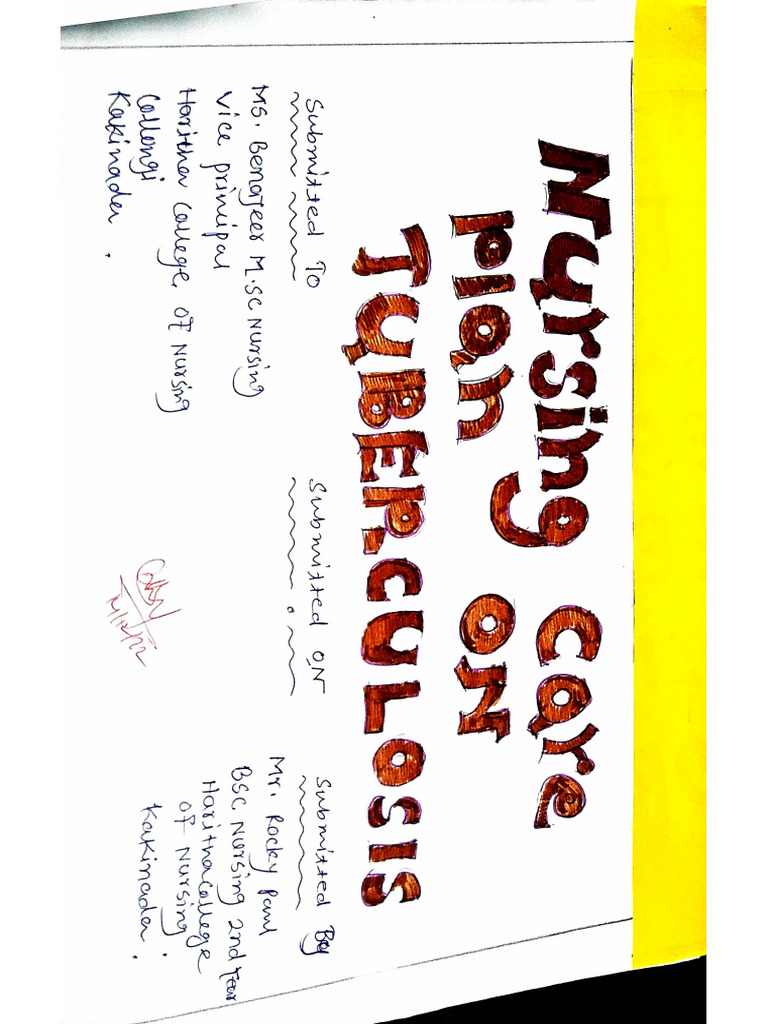 Nursing Care
plan ON
TUBERCULOSIS
Submitted To
MS. Benajeer M.SC Nursing
Vice principal
Haritha College, of Nursing
Kakinada.
Submitted ON
14/12/22
Submitted By
Mr. Rocky Paul
BSC Nursing 2nd Year
Haritha College
of Nursing.
Kakinada.